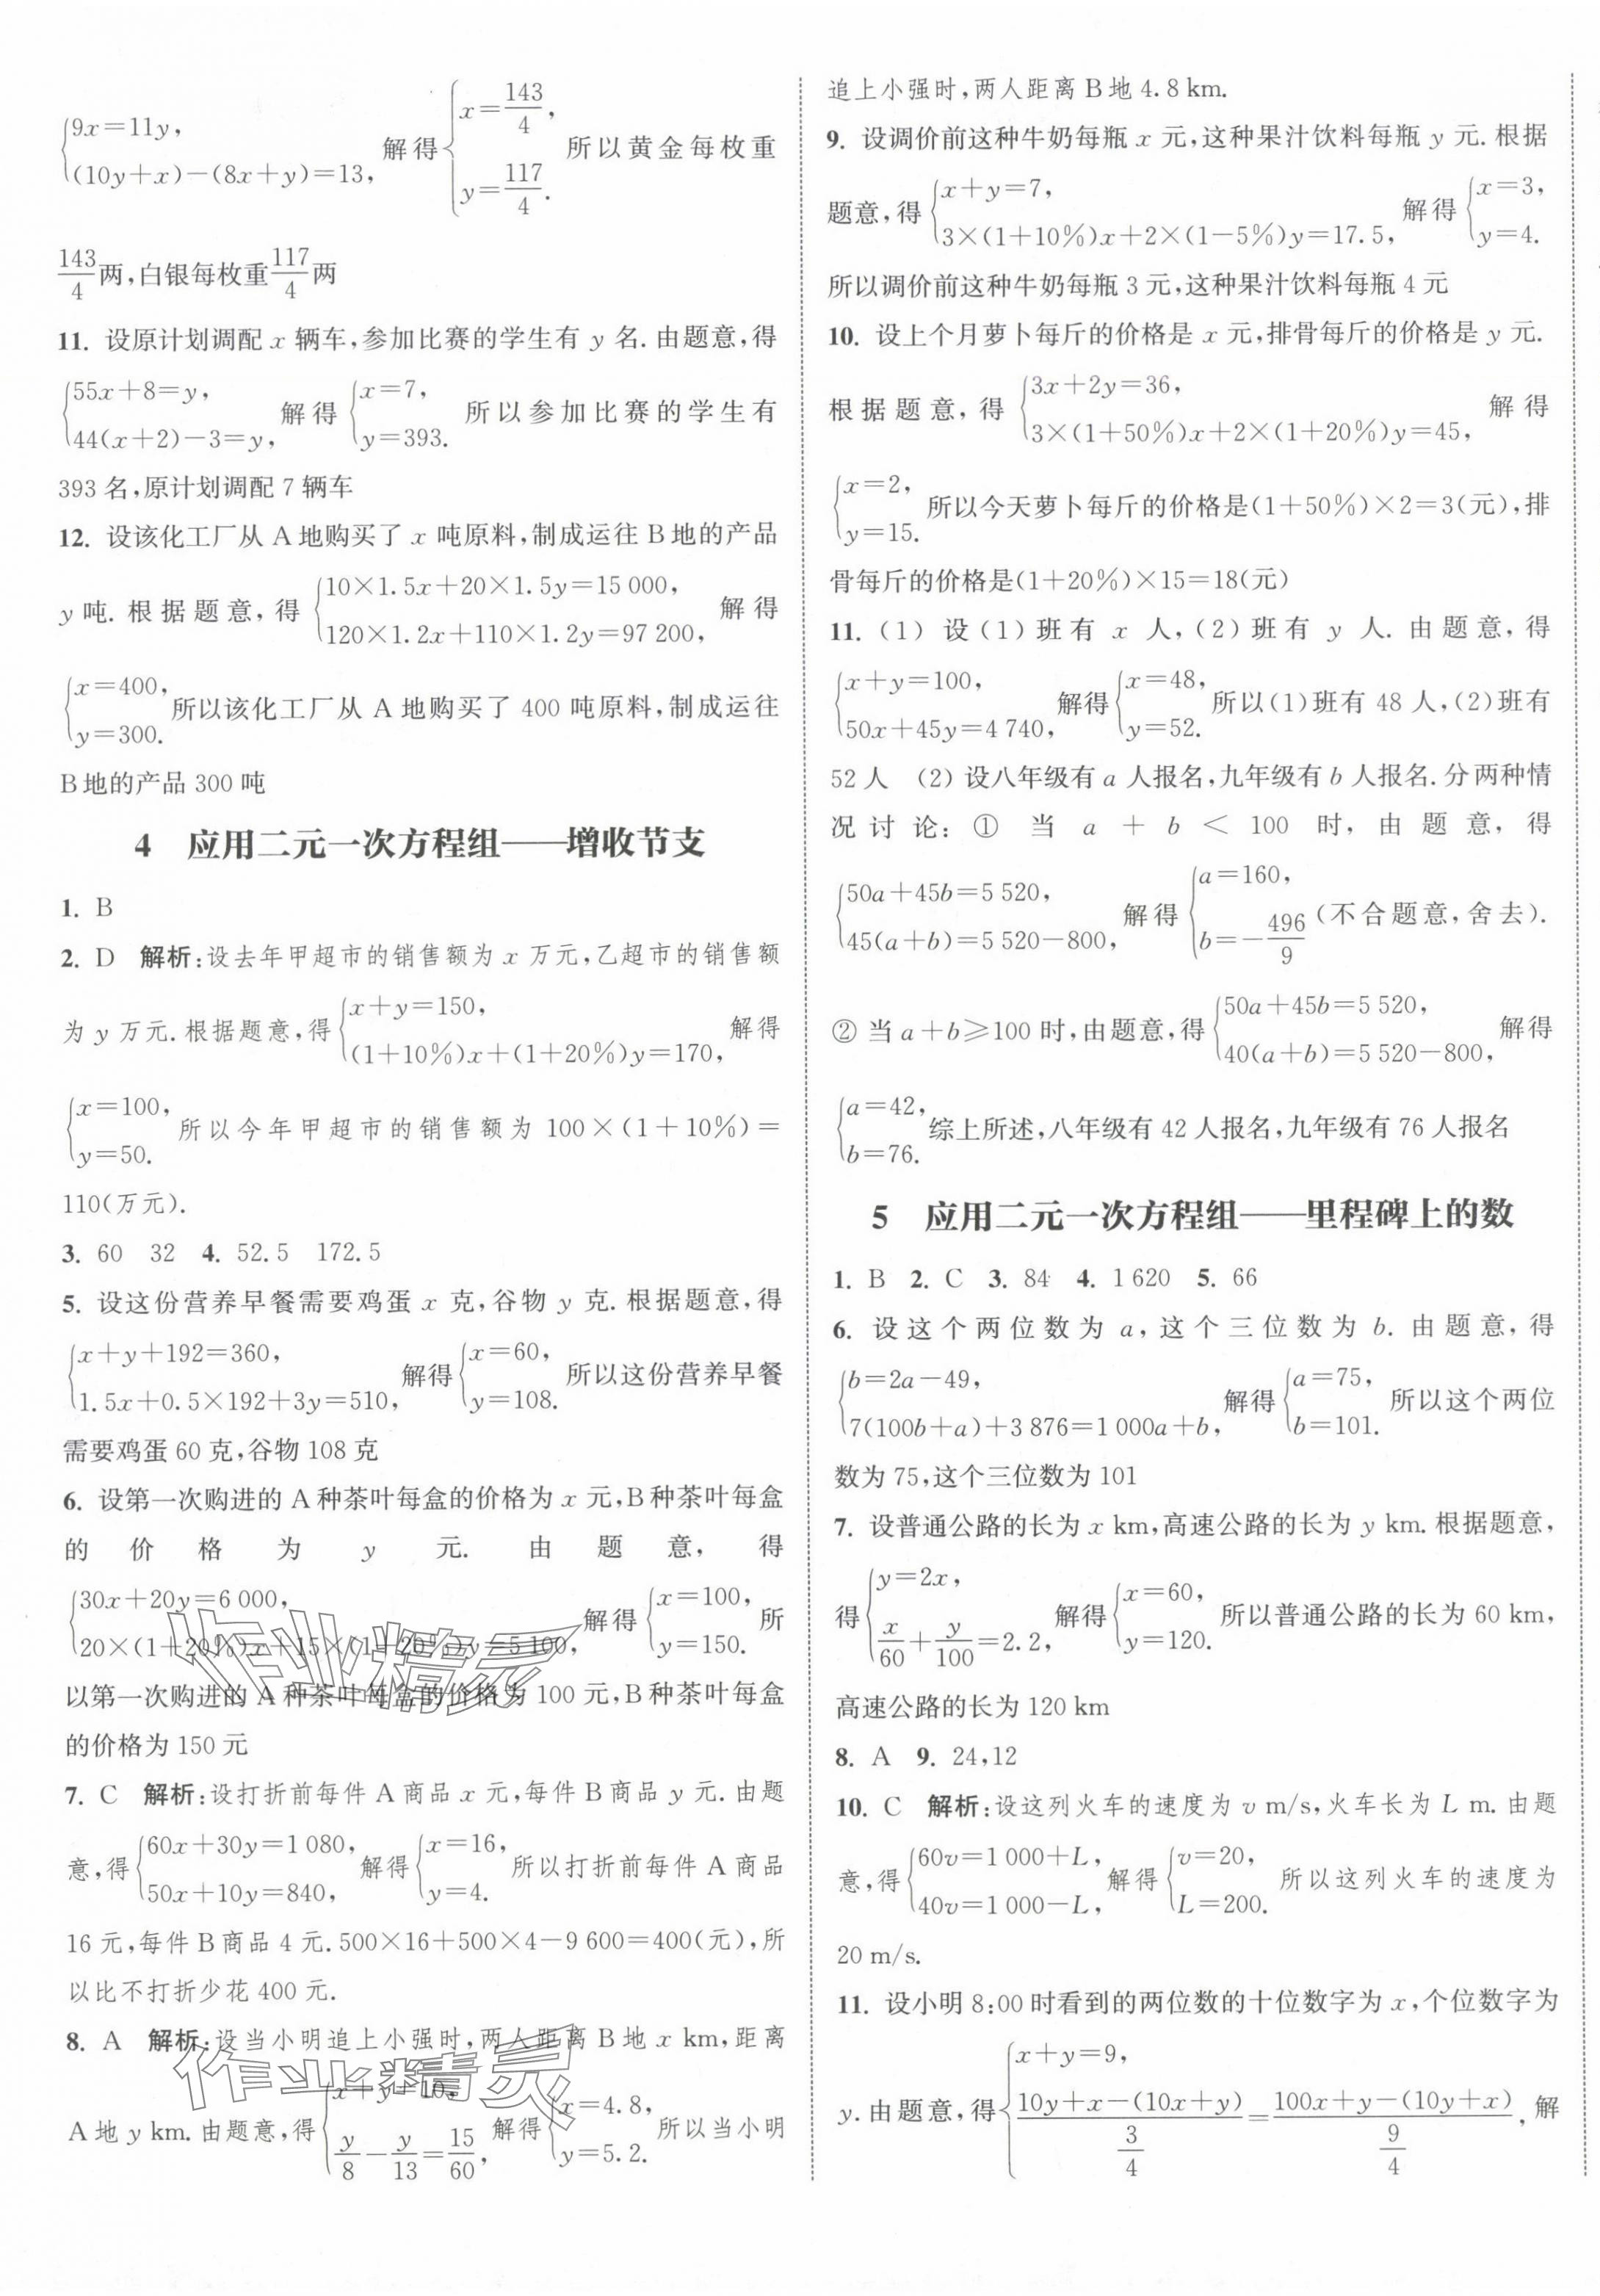 {9x=11y,
(10y+x)-(8x+y)=13, 解得{x=143/4, y=117/4. 所以黄金每枚重
143/4两,白银每枚重117/4两
11. 设原计划调配 x 辆车,参加比赛的学生有 y 名.由题意,得
{55x+8=y,
44(x+2)-3=y, 解得{x=7, y=393. 所以参加比赛的学生有
393 名,原计划调配 7 辆车
12. 设该化工厂从 A 地购买了 x 吨原料,制成运往 B 地的产品
y 吨.根据题意,得{10×1.5x+20×1.5y=15 000, 120×1.2x+110×1.2y=97 200, 解得
{x=400, y=300. 所以该化工厂从 A 地购买了 400 吨原料,制成运往
B 地的产品 300 吨
4 应用二元一次方程组——增收节支
1. B
2. D 解析:设去年甲超市的销售额为 x 万元,乙超市的销售额
为 y 万元.根据题意,得{x+y=150, (1+10%)x+(1+20%)y=170, 解得
{x=100, y=50. 所以今年甲超市的销售额为 100×(1+10%)=
110(万元).
3. 60 32 4. 52.5 172.5
5. 设这份营养早餐需要鸡蛋 x 克,谷物 y 克.根据题意,得
{x+y+192=360, 1.5x+0.5×192+3y=510, 解得{x=60, y=108. 所以这份营养早餐
需要鸡蛋 60 克,谷物 108 克
6. 设第一次购进的 A 种茶叶每盒的价格为 x 元,B 种茶叶每盒
的价格为 y 元.由题意,得
{30x+20y=6 000, 20×(1+20%)x+15×(1+20%)y=5 100, 解得{x=100, y=150. 所
以第一次购进的 A 种茶叶每盒的价格为 100 元,B 种茶叶每盒
的价格为 150 元
7. C 解析:设打折前每件 A 商品 x 元,每件 B 商品 y 元.由题
意,得{60x+30y=1 080, 50x+10y=840, 解得{x=16, y=4. 所以打折前每件 A 商品
16 元,每件 B 商品 4 元.500×16+500×4-9 600=400(元),所
以比不打折少花 400 元.
8. A 解析:设当小明追上小强时,两人距离 B 地 x km,距离
A 地 y km.由题意,得{x+y=10, y/8-y/13=15/60, 解得{x=4.8, y=5.2. 所以当小明
追上小强时,两人距离 B 地 4.8 km.
9. 设调价前这种牛奶每瓶 x 元,这种果汁饮料每瓶 y 元.根据
题意,得{x+y=7, 3×(1+10%)x+2×(1-5%)y=17.5, 解得{x=3, y=4.
所以调价前这种牛奶每瓶 3 元,这种果汁饮料每瓶 4 元
10. 设上个月萝卜每斤的价格是 x 元,排骨每斤的价格是 y 元.
根据题意,得{3x+2y=36, 3×(1+50%)x+2×(1+20%)y=45, 解得
{x=2, y=15. 所以今天萝卜每斤的价格是(1+50%)×2=3(元),排
骨每斤的价格是(1+20%)×15=18(元)
11. (1) 设(1)班有 x 人,(2)班有 y 人.由题意,得
{x+y=100, 50x+45y=4 740, 解得{x=48, y=52. 所以(1)班有 48 人,(2)班有
52 人 (2) 设八年级有 a 人报名,九年级有 b 人报名.分两种情
况讨论:① 当 a+b<100 时,由题意,得
{50a+45b=5 520, 45(a+b)=5 520-800, 解得{a=160, b=-496/9 (不合题意,舍去).
② 当 a+b≥100 时,由题意,得{50a+45b=5 520, 40(a+b)=5 520-800, 解得
{a=42, b=76. 综上所述,八年级有 42 人报名,九年级有 76 人报名
5 应用二元一次方程组——里程碑上的数
1. B 2. C 3. 84 4. 1 620 5. 66
6. 设这个两位数为 a,这个三位数为 b.由题意,得
{b=2a-49, 7(100b+a)+3 876=1 000a+b, 解得{a=75, b=101. 所以这个两位
数为 75,这个三位数为 101
7. 设普通公路的长为 x km,高速公路的长为 y km.根据题意,
得{y=2x, x/60+y/100=2.2, 解得{x=60, y=120. 所以普通公路的长为 60 km,
高速公路的长为 120 km
8. A 9. 24,12
10. C 解析:设这列火车的速度为 v m/s,火车长为 L m.由题
意,得{60v=1 000+L, 40v=1 000-L, 解得{v=20, L=200. 所以这列火车的速度为
20 m/s.
11. 设小明 8:00 时看到的两位数的十位数字为 x,个位数字为
y.由题意,得{x+y=9, (10y+x-(10x+y))/(3/4)=(100x+y-(10y+x))/(9/4), 解
作业精灵
作业精灵